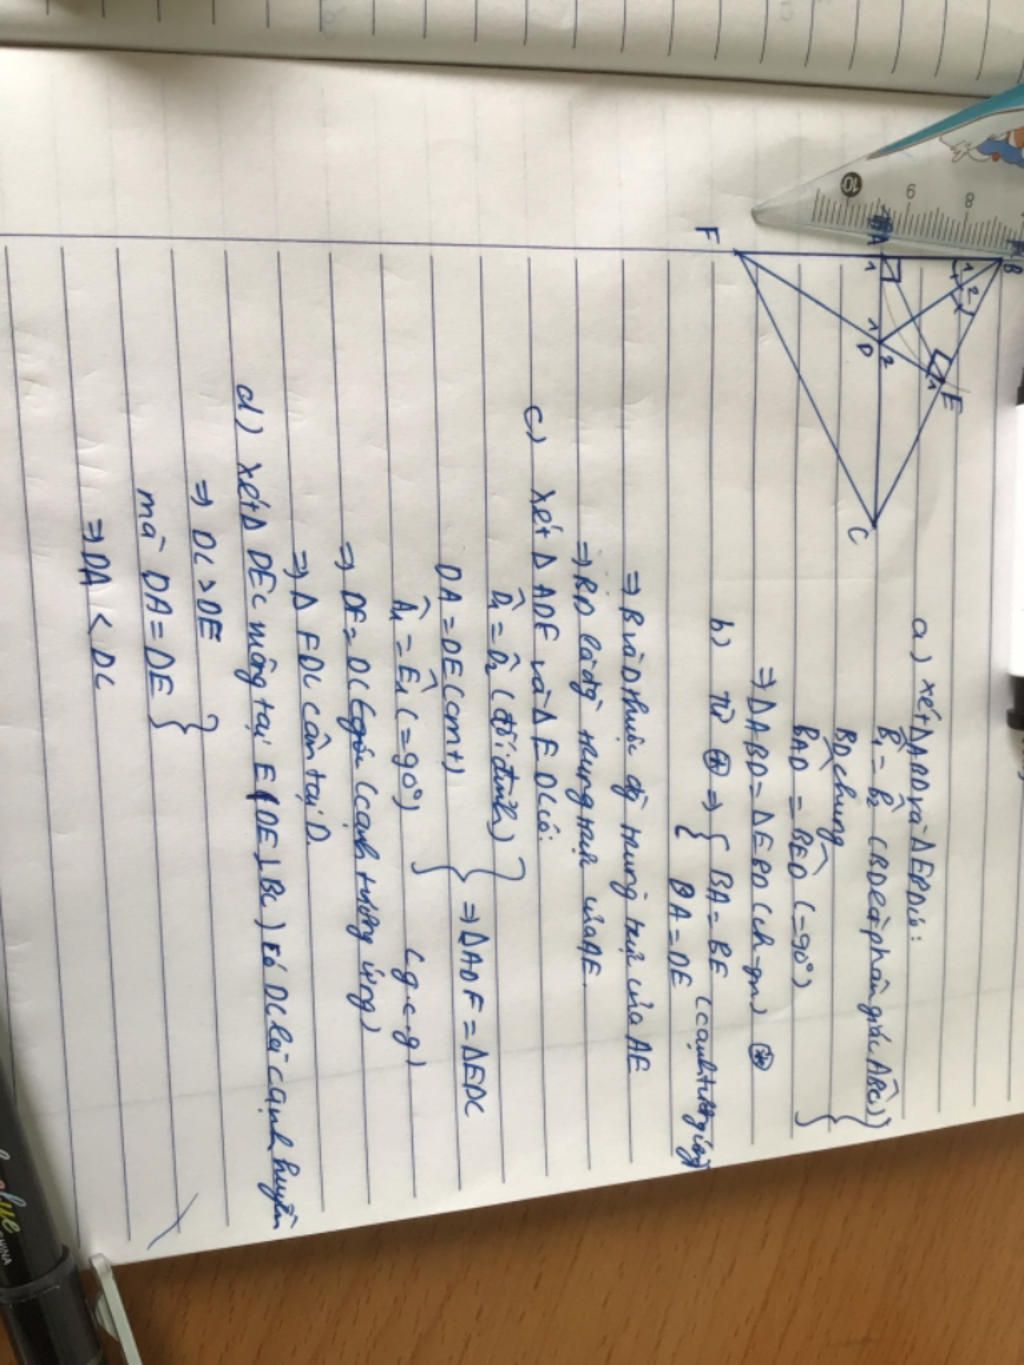 B
A
F
C
E
D
1
2
1
1
2
1
10
9
8
a) xét ΔABD và ΔEBD có:
B̂₁ = B̂₂ (BD là phân giác AB̂C)
BD chung
BÂD = BÊD (=90°)
⇒ ΔABD = ΔEBD (ch-gn) ⊛
b) Từ ⊛ ⇒ { BA = BE (cạnh tương ứng)
DA = DE
⇒ B và D thuộc đg trung trực của AE
⇒ BD là đg trung trực của AE.
c) Xét Δ ADF và Δ EDC có:
D̂₁ = D̂₂ (đối đỉnh)
DA = DE (cmt) } ⇒ ΔADF = ΔEDC
Â₁ = Ê₁ (= 90°) (g.c.g)
⇒ DF = DC (cạnh tương ứng)
⇒ Δ FDC cân tại D.
d) xét Δ DEC vuông tại E (DE ⊥ BC) có DC là cạnh huyền
⇒ DC > DE
mà DA = DE }
⇒ DA < DC
CHINA